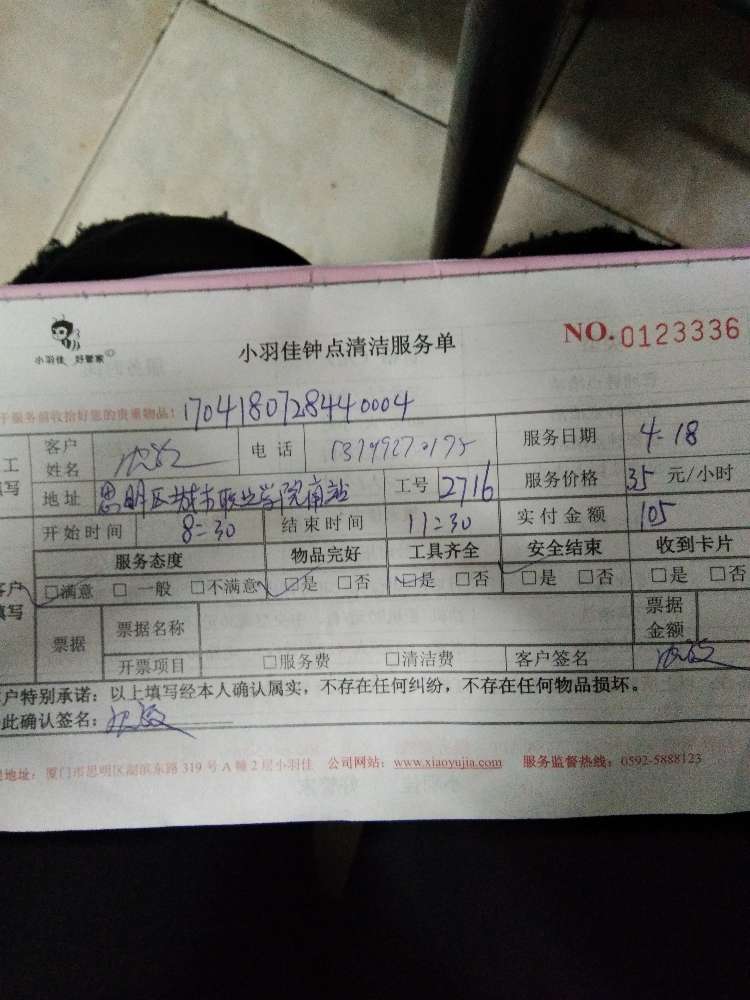 小羽佳 好管家
小羽佳钟点清洁服务单
NO.0123336
于服务前收拾好您的贵重物品! 1704180728440004
工 客户姓名 电话 服务日期 4-18
填写 地址 思明区城市职业学院南站 工号 2716 服务价格 35 元/小时
开始时间 8=30 结束时间 11=30 实付金额 105
服务态度 物品完好 工具齐全 安全结束 收到卡片
客户填写 □满意 □一般 □不满意 □是 □否 □是 □否 □是 □否 □是 □否
票据 票据名称 票据金额
开票项目 □服务费 □清洁费 客户签名
客户特别承诺：以上填写经本人确认属实，不存在任何纠纷，不存在任何物品损坏。
此确认签名：
地址：厦门市思明区湖滨东路319号A幢2层小羽佳 公司网站：www.xiaoyujia.com 服务监督热线：0592-5888123